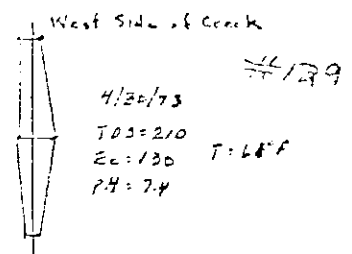 West Side of Creek
#129
4/30/73
TDS=210
Ec:130 T:68°F
PH:7.4